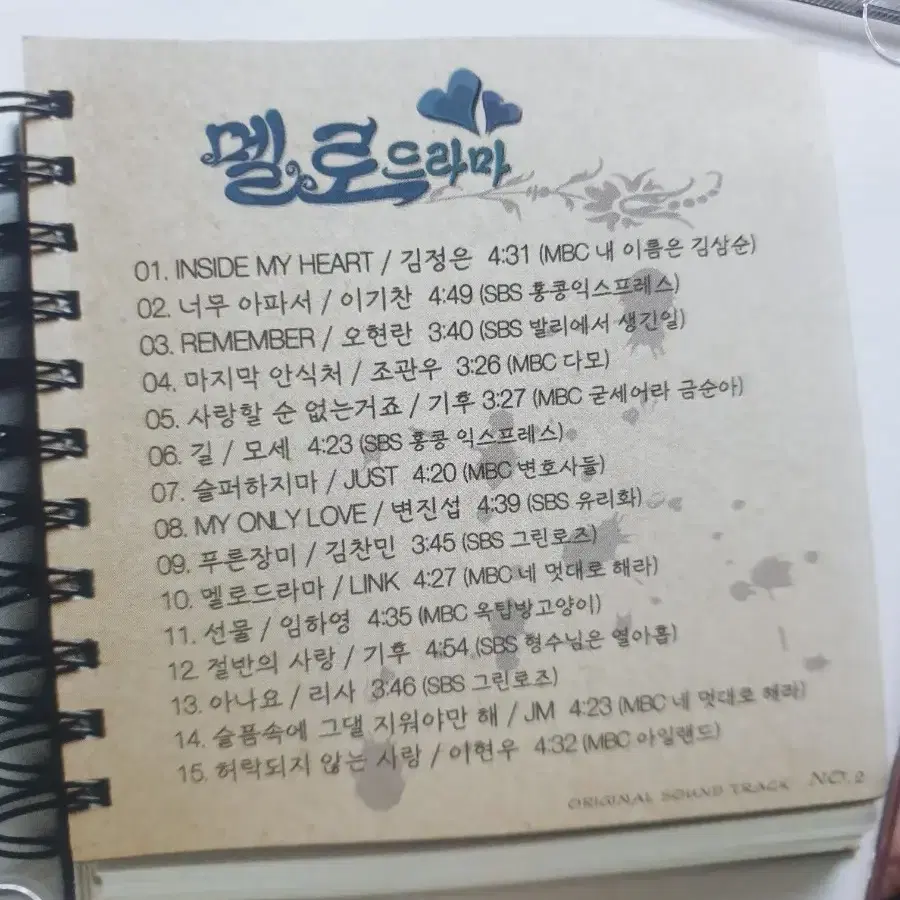 멜로드라마
01. INSIDE MY HEART / 김정은 4:31 (MBC 내 이름은 김삼순)
02. 너무 아파서 / 이기찬 4:49 (SBS 홍콩익스프레스)
03. REMEMBER / 오현란 3:40 (SBS 발리에서 생긴일)
04. 마지막 안식처 / 조관우 3:26 (MBC 다모)
05. 사랑할 순 없는거죠 / 기후 3:27 (MBC 굳세어라 금순아)
06. 길 / 모세 4:23 (SBS 홍콩 익스프레스)
07. 슬퍼하지마 / JUST 4:20 (MBC 변호사들)
08. MY ONLY LOVE / 변진섭 4:39 (SBS 유리화)
09. 푸른장미 / 김찬민 3:45 (SBS 그린로즈)
10. 멜로드라마 / LINK 4:27 (MBC 네 멋대로 해라)
11. 선물 / 임하영 4:35 (MBC 옥탑방고양이)
12. 절반의 사랑 / 기후 4:54 (SBS 형수님은 열아홉)
13. 아나요 / 리사 3:46 (SBS 그린로즈)
14. 슬픔속에 그댈 지워야만 해 / JM 4:23 (MBC 네 멋대로 해라)
15. 허락되지 않는 사랑 / 이현우 4:32 (MBC 아일랜드)
ORIGINAL SOUND TRACK NO.2